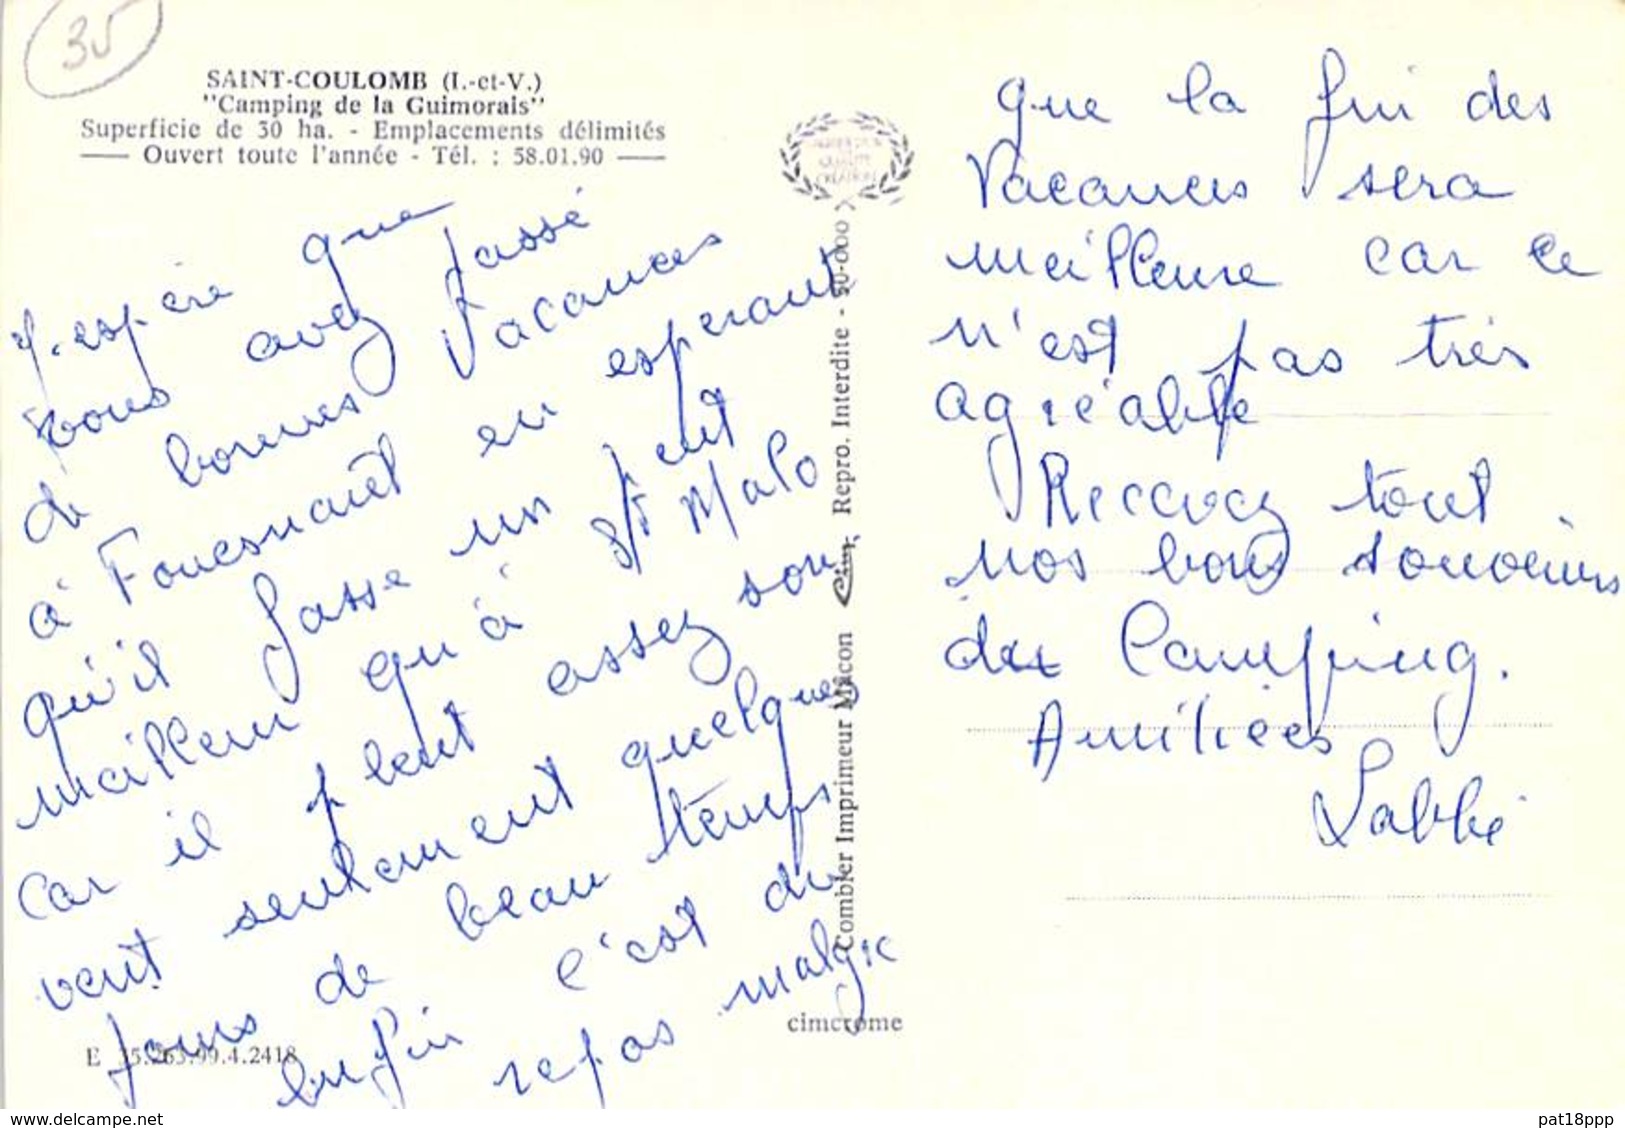 35
SAINT-COULOMB (I.-et-V.)
"Camping de la Guimorais"
Superficie de 30 ha. - Emplacements délimités
Ouvert toute l'année - Tél. : 58.01.90
J'espère que
vous avez passé
de bonnes vacances
à Fouesnant en esperant
qu'il fasse un peut
meilleur qu'à St Malo
car il pleut assez sou
vent seulement quelques
jours de beau temps
enfin c'est du
repos malgre
E 35.263.99.4.2418
Combier Imprimeur Mâcon Cim Repro. Interdite - 50-000 X
cimcrome
que la fin des
Vacances sera
meilleure car ce
n'est pas très
agréable
Recevez tout
nos bons souvenirs
du Camping.
Amitiées
Labbé
delcampe.net
pat18ppp